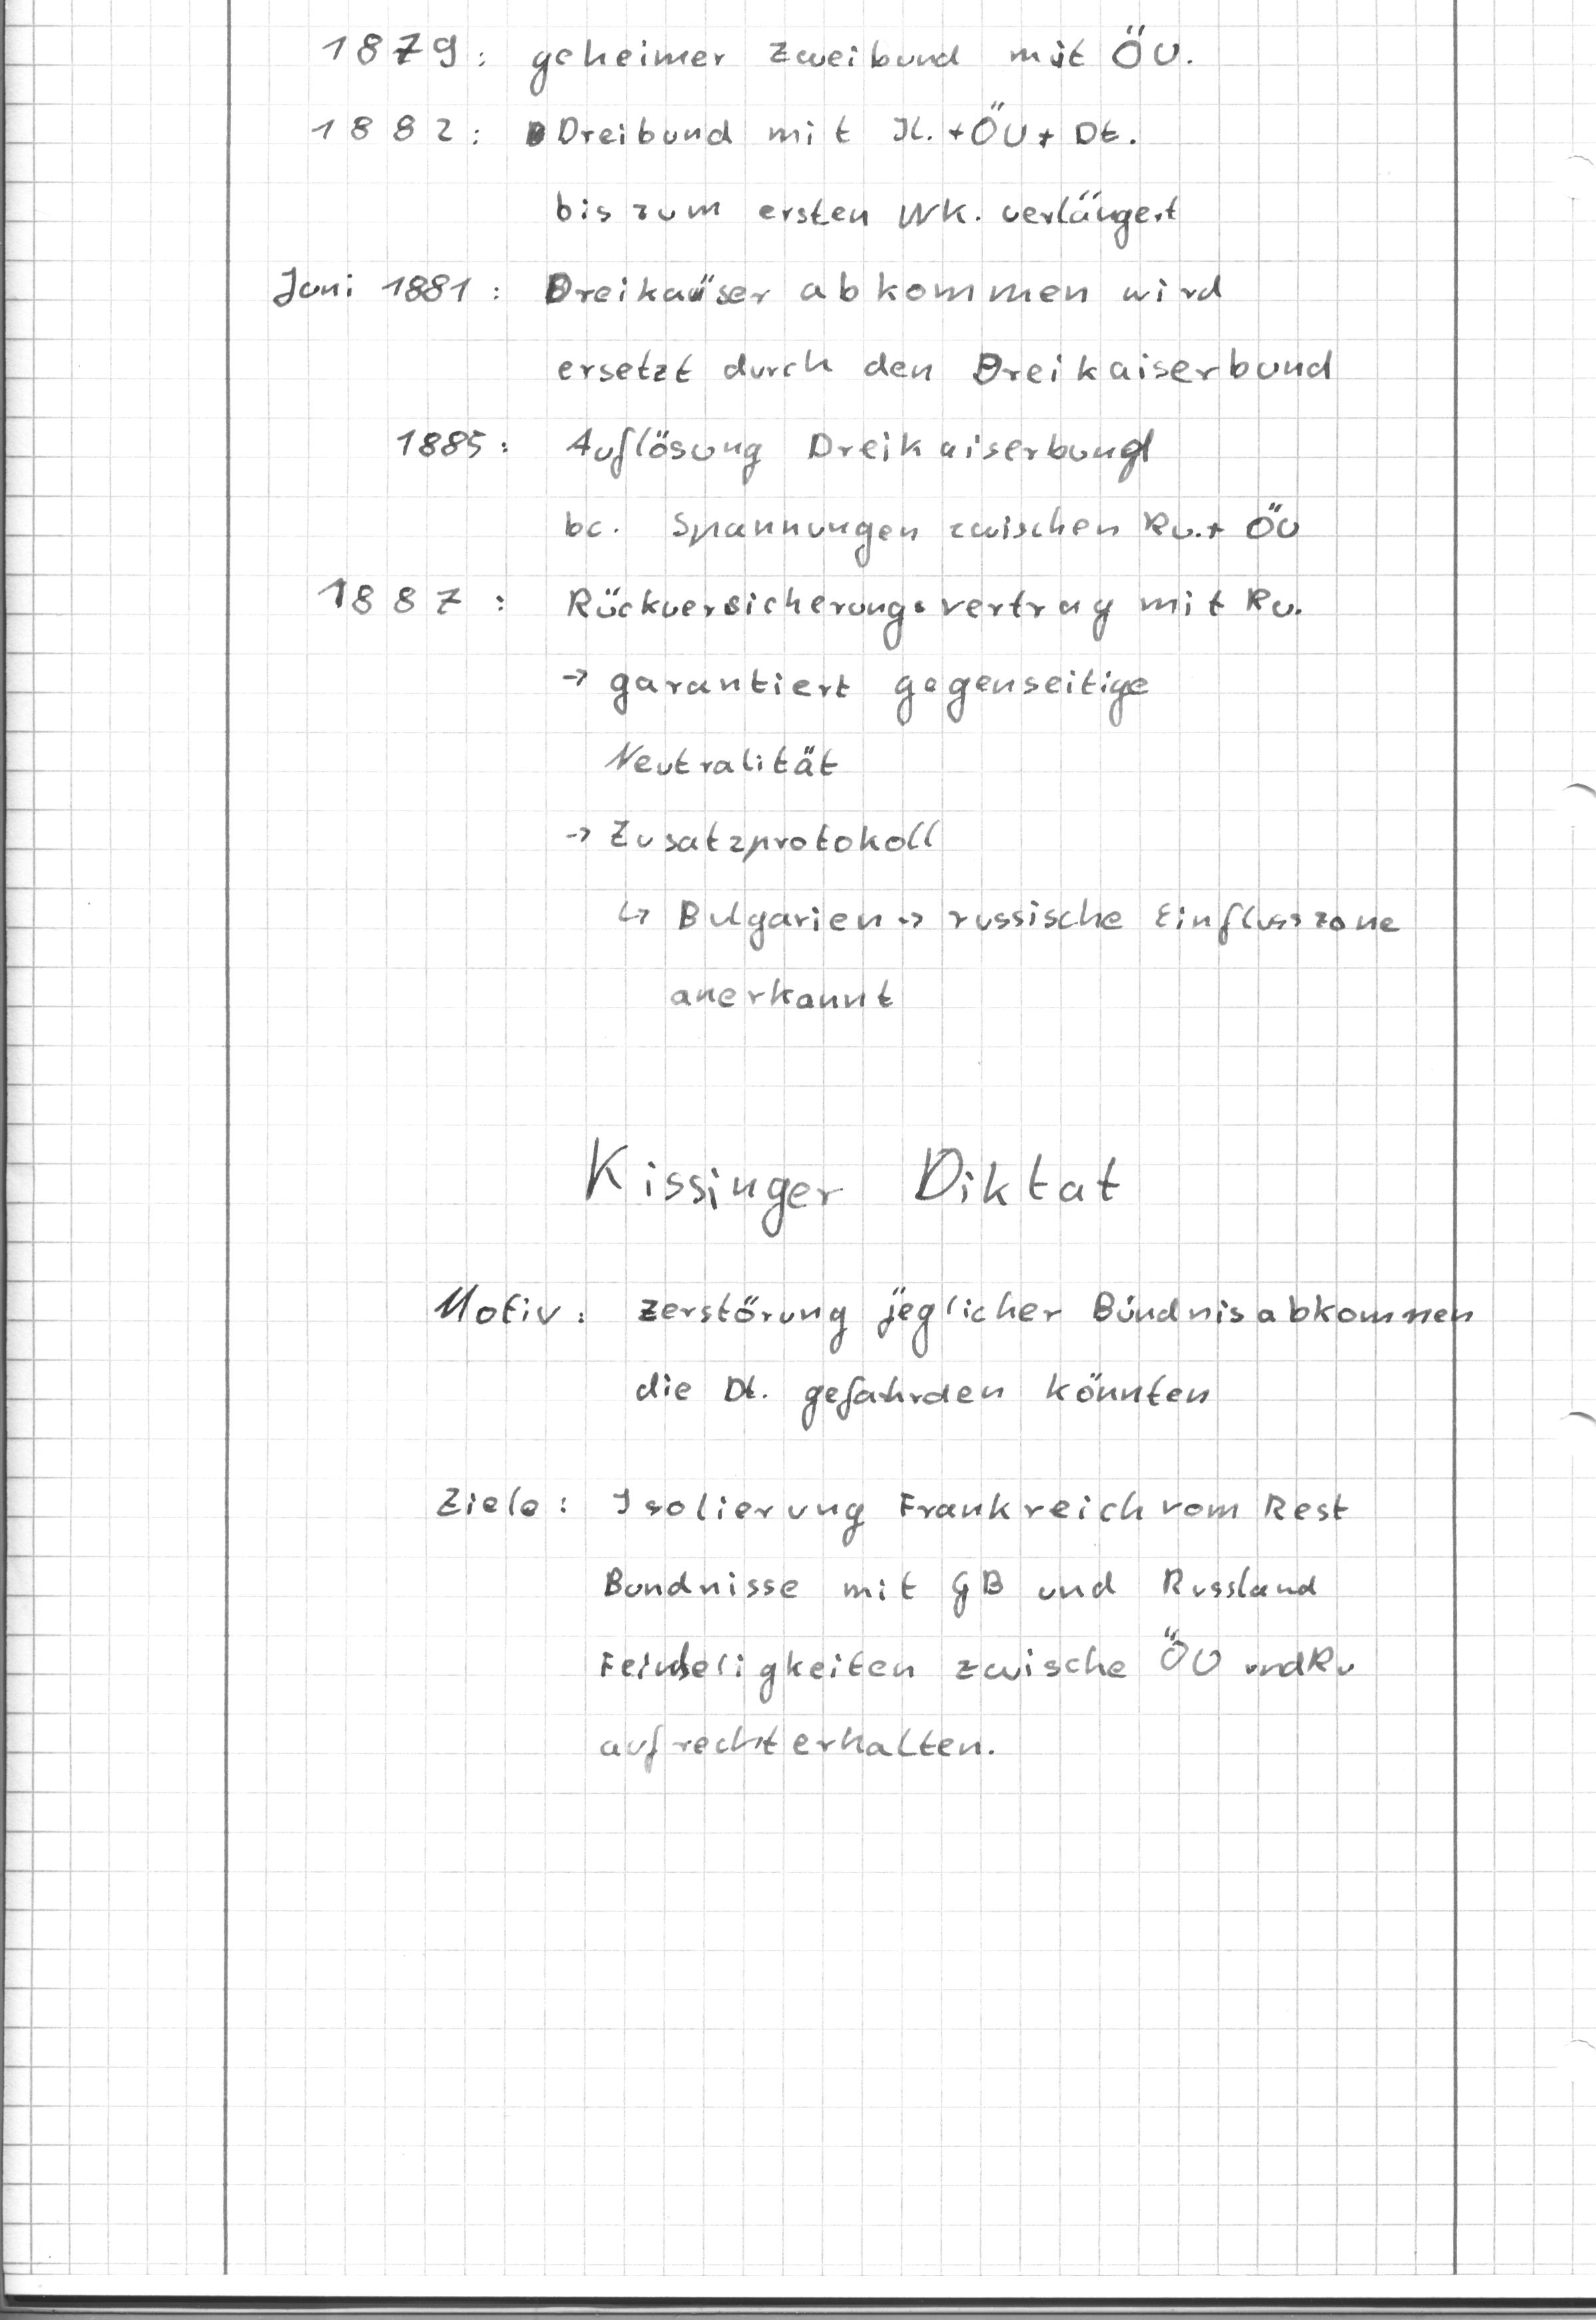 1879: geheimer Zweibund mit ÖU.
1882: Dreibund mit It. + ÖU + Dt.
bis zum ersten WK. verlängert
Juni 1881: Dreikaiserabkommen wird
ersetzt durch den Dreikaiserbund
1885: Auflösung Dreikaiserbund
bc. Spannungen zwischen Ru. + ÖU
1887: Rückversicherungsvertrag mit Ru.
→ garantiert gegenseitige
Neutralität
→ Zusatzprotokoll
↳ Bulgarien → russische Einflusszone
anerkannt
Kissinger Diktat
Motiv: Zerstörung jeglicher Bündnisabkommen
die Dt. gefahrden könnten
Ziele: Isolierung Frankreich vom Rest
Bundnisse mit GB und Russland
Feindseligkeiten zwische ÖU und Ru
aufrecht erhalten.